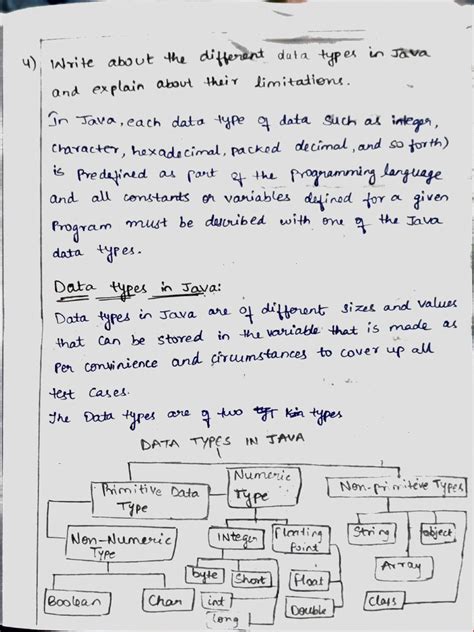 4) Write about the different data types in Java
and explain about their limitations.
In Java, each data type of data such as integer,
character, hexadecimal, packed decimal, and so forth)
is Predefined as part of the programming language
and all constants or variables defined for a given
Program must be described with one of the Java
data types.
Data types in Java:
Data types in Java are of different sizes and values
that can be stored in the variable that is made as
Per convinience and circumstances to cover up all
test cases.
The Data types are of two types
DATA TYPES IN JAVA
Primitive Data
Type
Numeric
Type
Non-primiteve Types
Non-Numeric
Type
Integer
Floating
Point
String
object
Array
byte
Short
Float
Class
Boolean
Char
int
Double
long